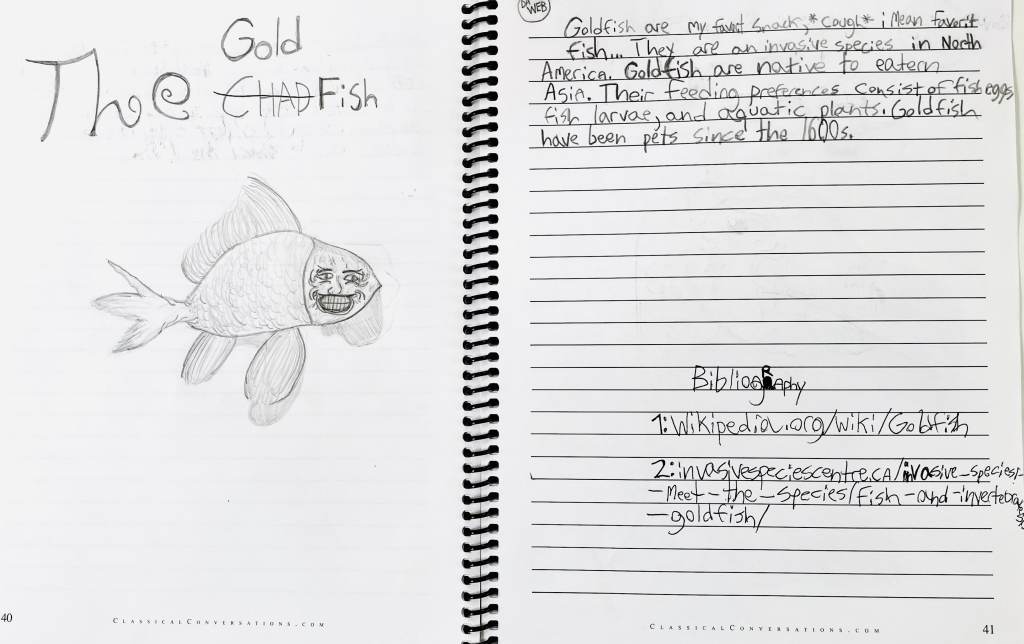 Gold
The CHAD Fish
40
ClassicalConversations.com
DR WEB
Goldfish are my favrit snack, *cough* i mean favorit
fish... They are an invasive species in North
America. Goldfish are native to eatern
Asia. Their feeding preferences consist of fish eggs,
fish larvae, and aquatic plants. Goldfish
have been pets since the 1600s.
BibliogRAphy
1: Wikipedia.org/wiki/Goldfish
2: invasivespeciescentre.CA/invasive-species/-
-Meet-the-species/fish-and-invertebra
-goldfish/
ClassicalConversations.com
41